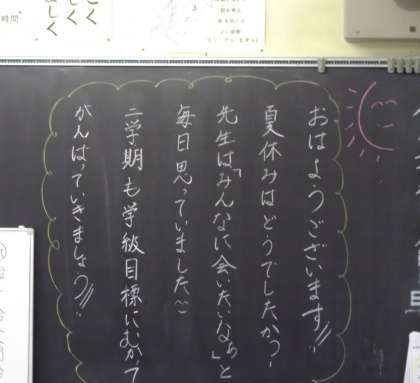 おはようございます!!
夏休みはどうでしたかっ!
先生は「みんなに会いたいな〜」と
毎日思っていました^^
二学期も学級目標にむかって
がんばっていきましょう!!
時間